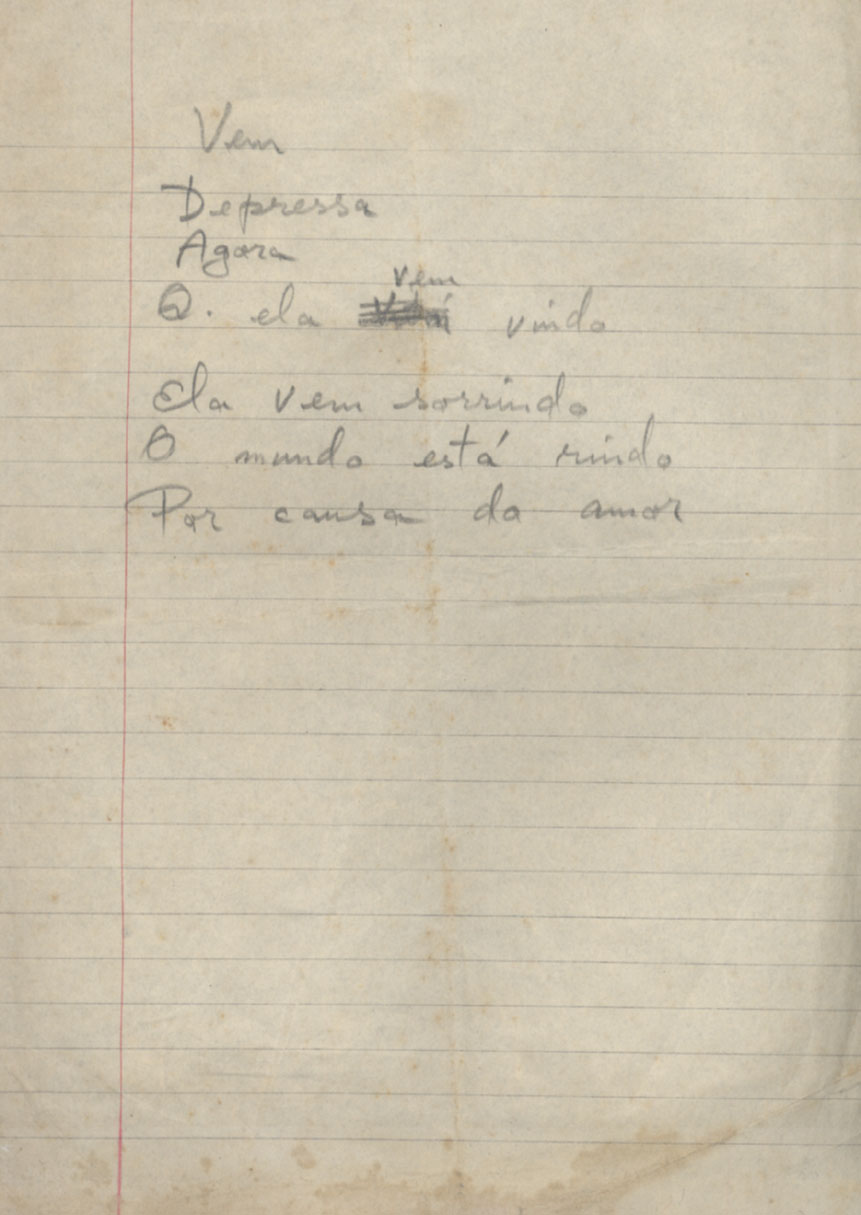 Vem
Depressa
Agora
Q. ela vem vindo
Ela vem sorrindo
O mundo está rindo
Por causa do amor